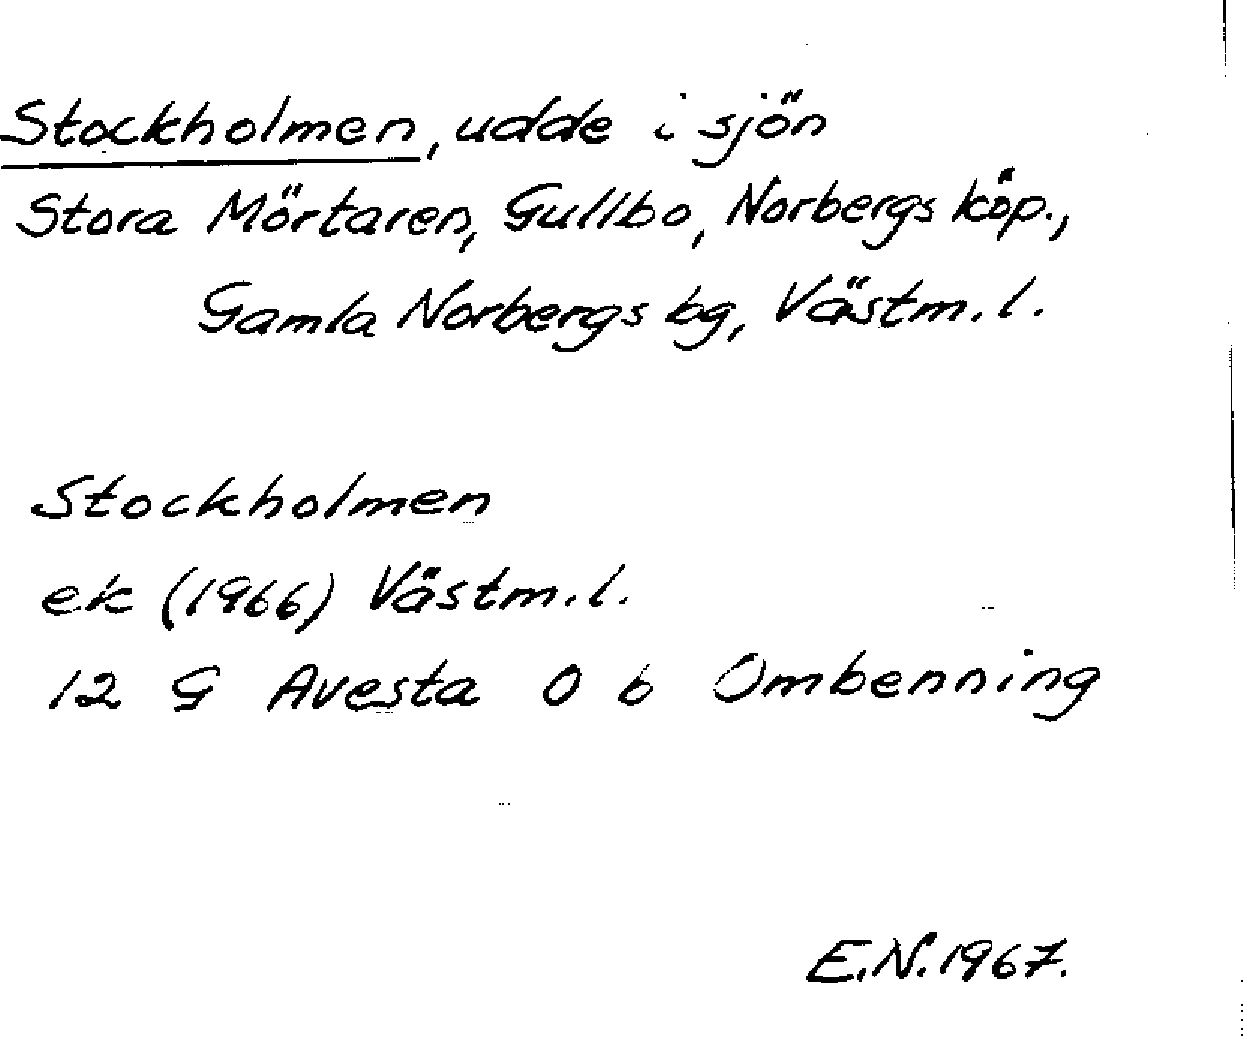 Stockholmen, udde i sjön
Stora Mörtaren, Gullbo, Norbergs köp.,
Gamla Norbergs bg, Västm.l.
Stockholmen
ek (1966) Västm.l.
12 G Avesta O b Ombenning
E.N. 1967.